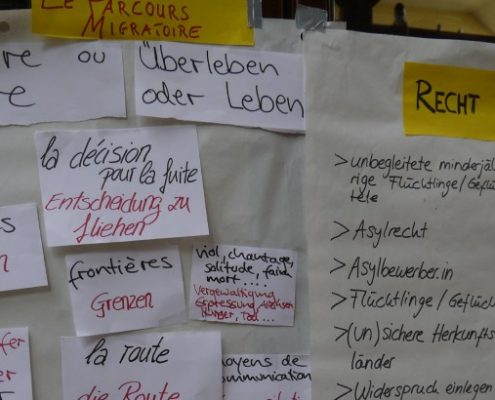 LE PARCOURS
MIGRATOIRE
re ou
re
Überleben
oder Leben
la décision
pour la fuite
Entscheidung zu
fliehen
frontières
Grenzen
viol, chantage,
solitude, faim
mort....
Vergewaltigung
Hunger, Tod...
la route
die Route
moyens de
communication
RECHT
> unbegleitete minderjäh
rige Flüchtlinge/Geflüch
tete
> Asylrecht
> Asylbewerber.in
> Flüchtlinge/Geflüc
> (un)sichere Herkunfts
länder
> Widerspruch einlegen